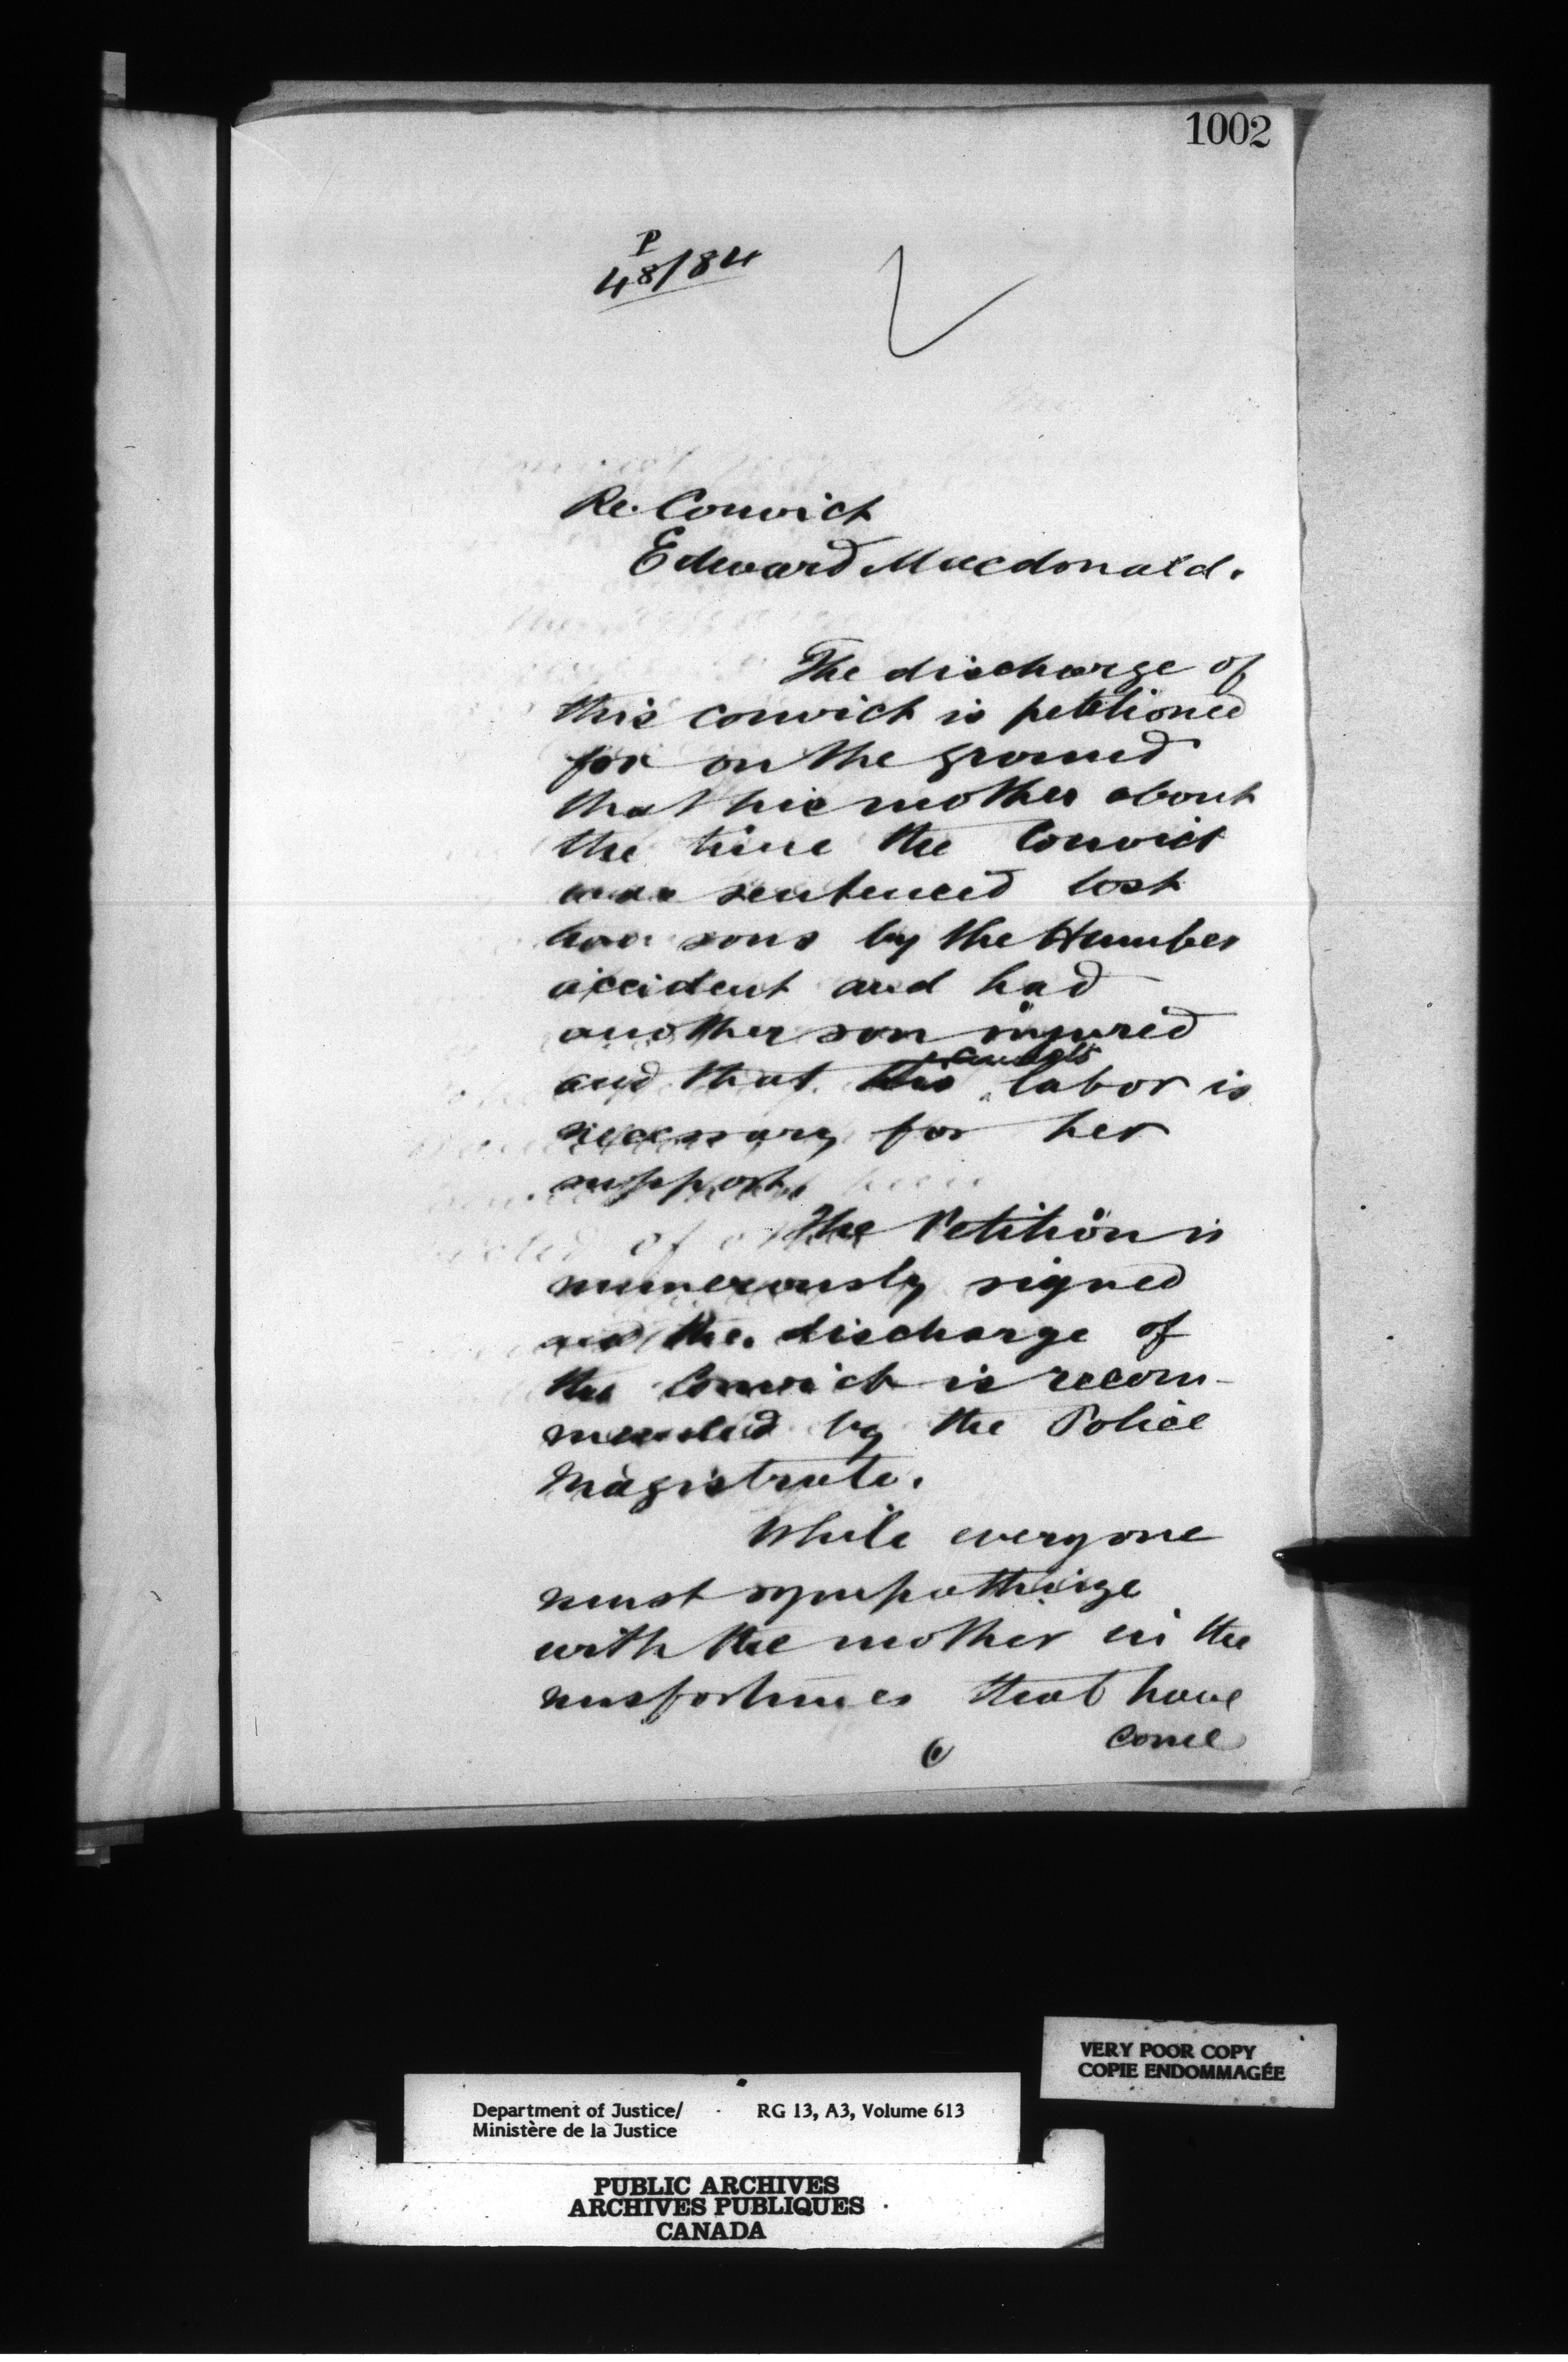 1002
P
48/84
Re. Convict
Edward Macdonald.
The discharge of
this convict is petitioned
for on the ground
that his mother about
the time the Convict
was sentenced lost
two sons by the Humber
accident and had
another son injured
convicts
and that this labor is
necessary for her
support.
The Petition is
numerously signed
and the discharge of
the Convict is recom-
mended by the Police
Magistrate.
While everyone
must sympathize
with the mother in the
misfortunes that have
come
VERY POOR COPY
COPIE ENDOMMAGÉE
Department of Justice/ RG 13, A3, Volume 613
Ministère de la Justice
PUBLIC ARCHIVES
ARCHIVES PUBLIQUES
CANADA